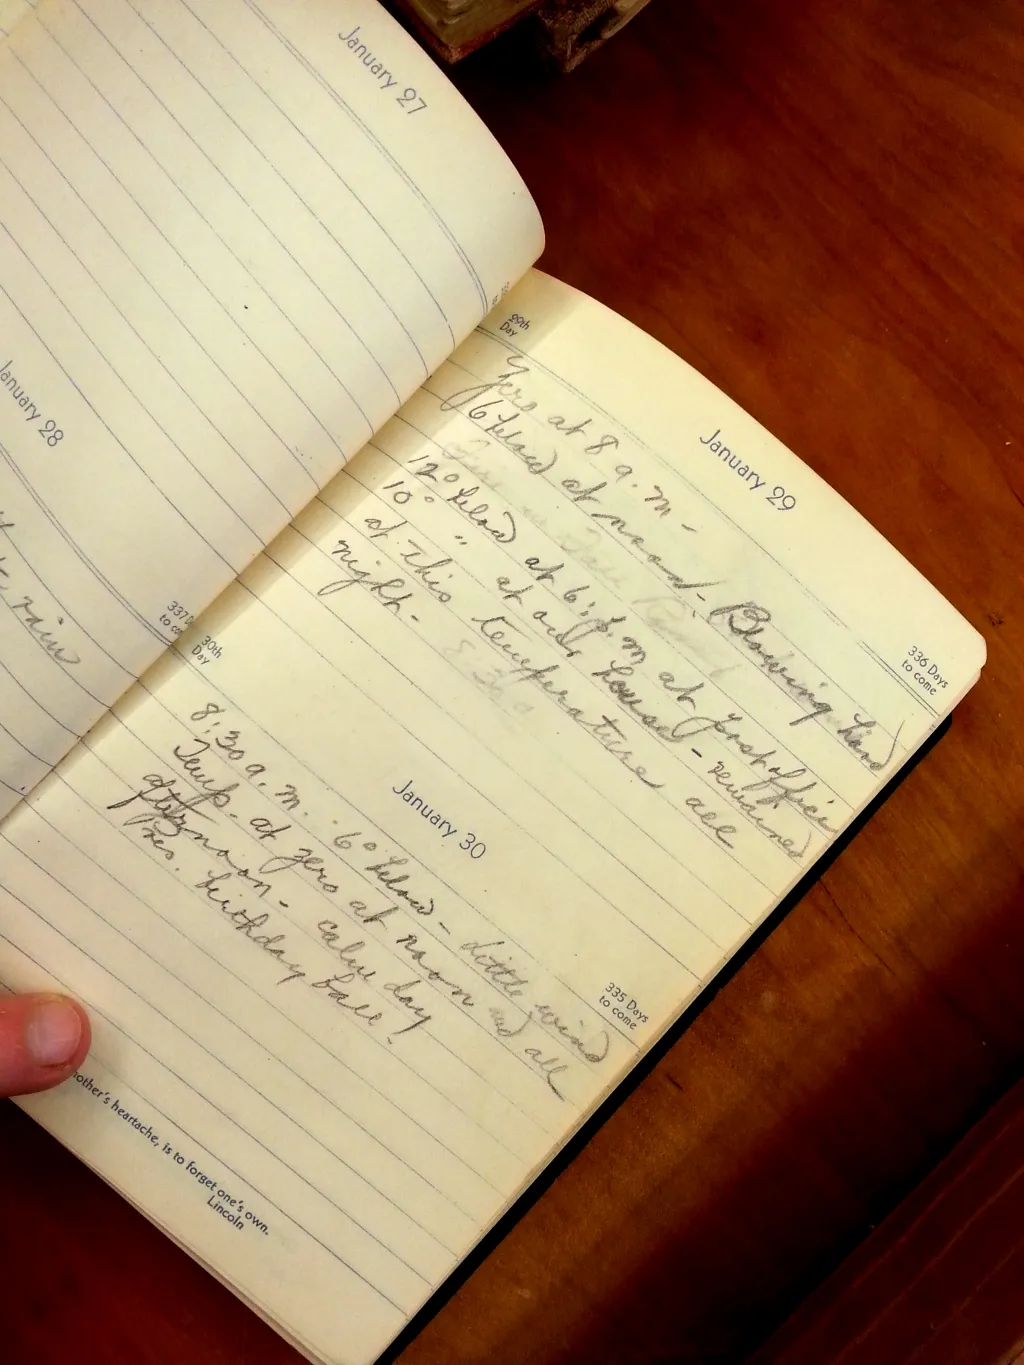 January 27
January 28
rain
337 D
to co
29th
Day
January 29
336 Days
to come
Zero at 8 a.m. -
6 below at noon - Blowing hard
12° below at 6 p.m at post office
10° " at our house - remained
at this temperature all
night.
30th
Day
January 30
335 Days
to come
8:30 a.m. - 6° below - little wind
Temp. at zero at noon and all
afternoon - calm day
Pres. birthday ball!
nother's heartache, is to forget one's own.
Lincoln